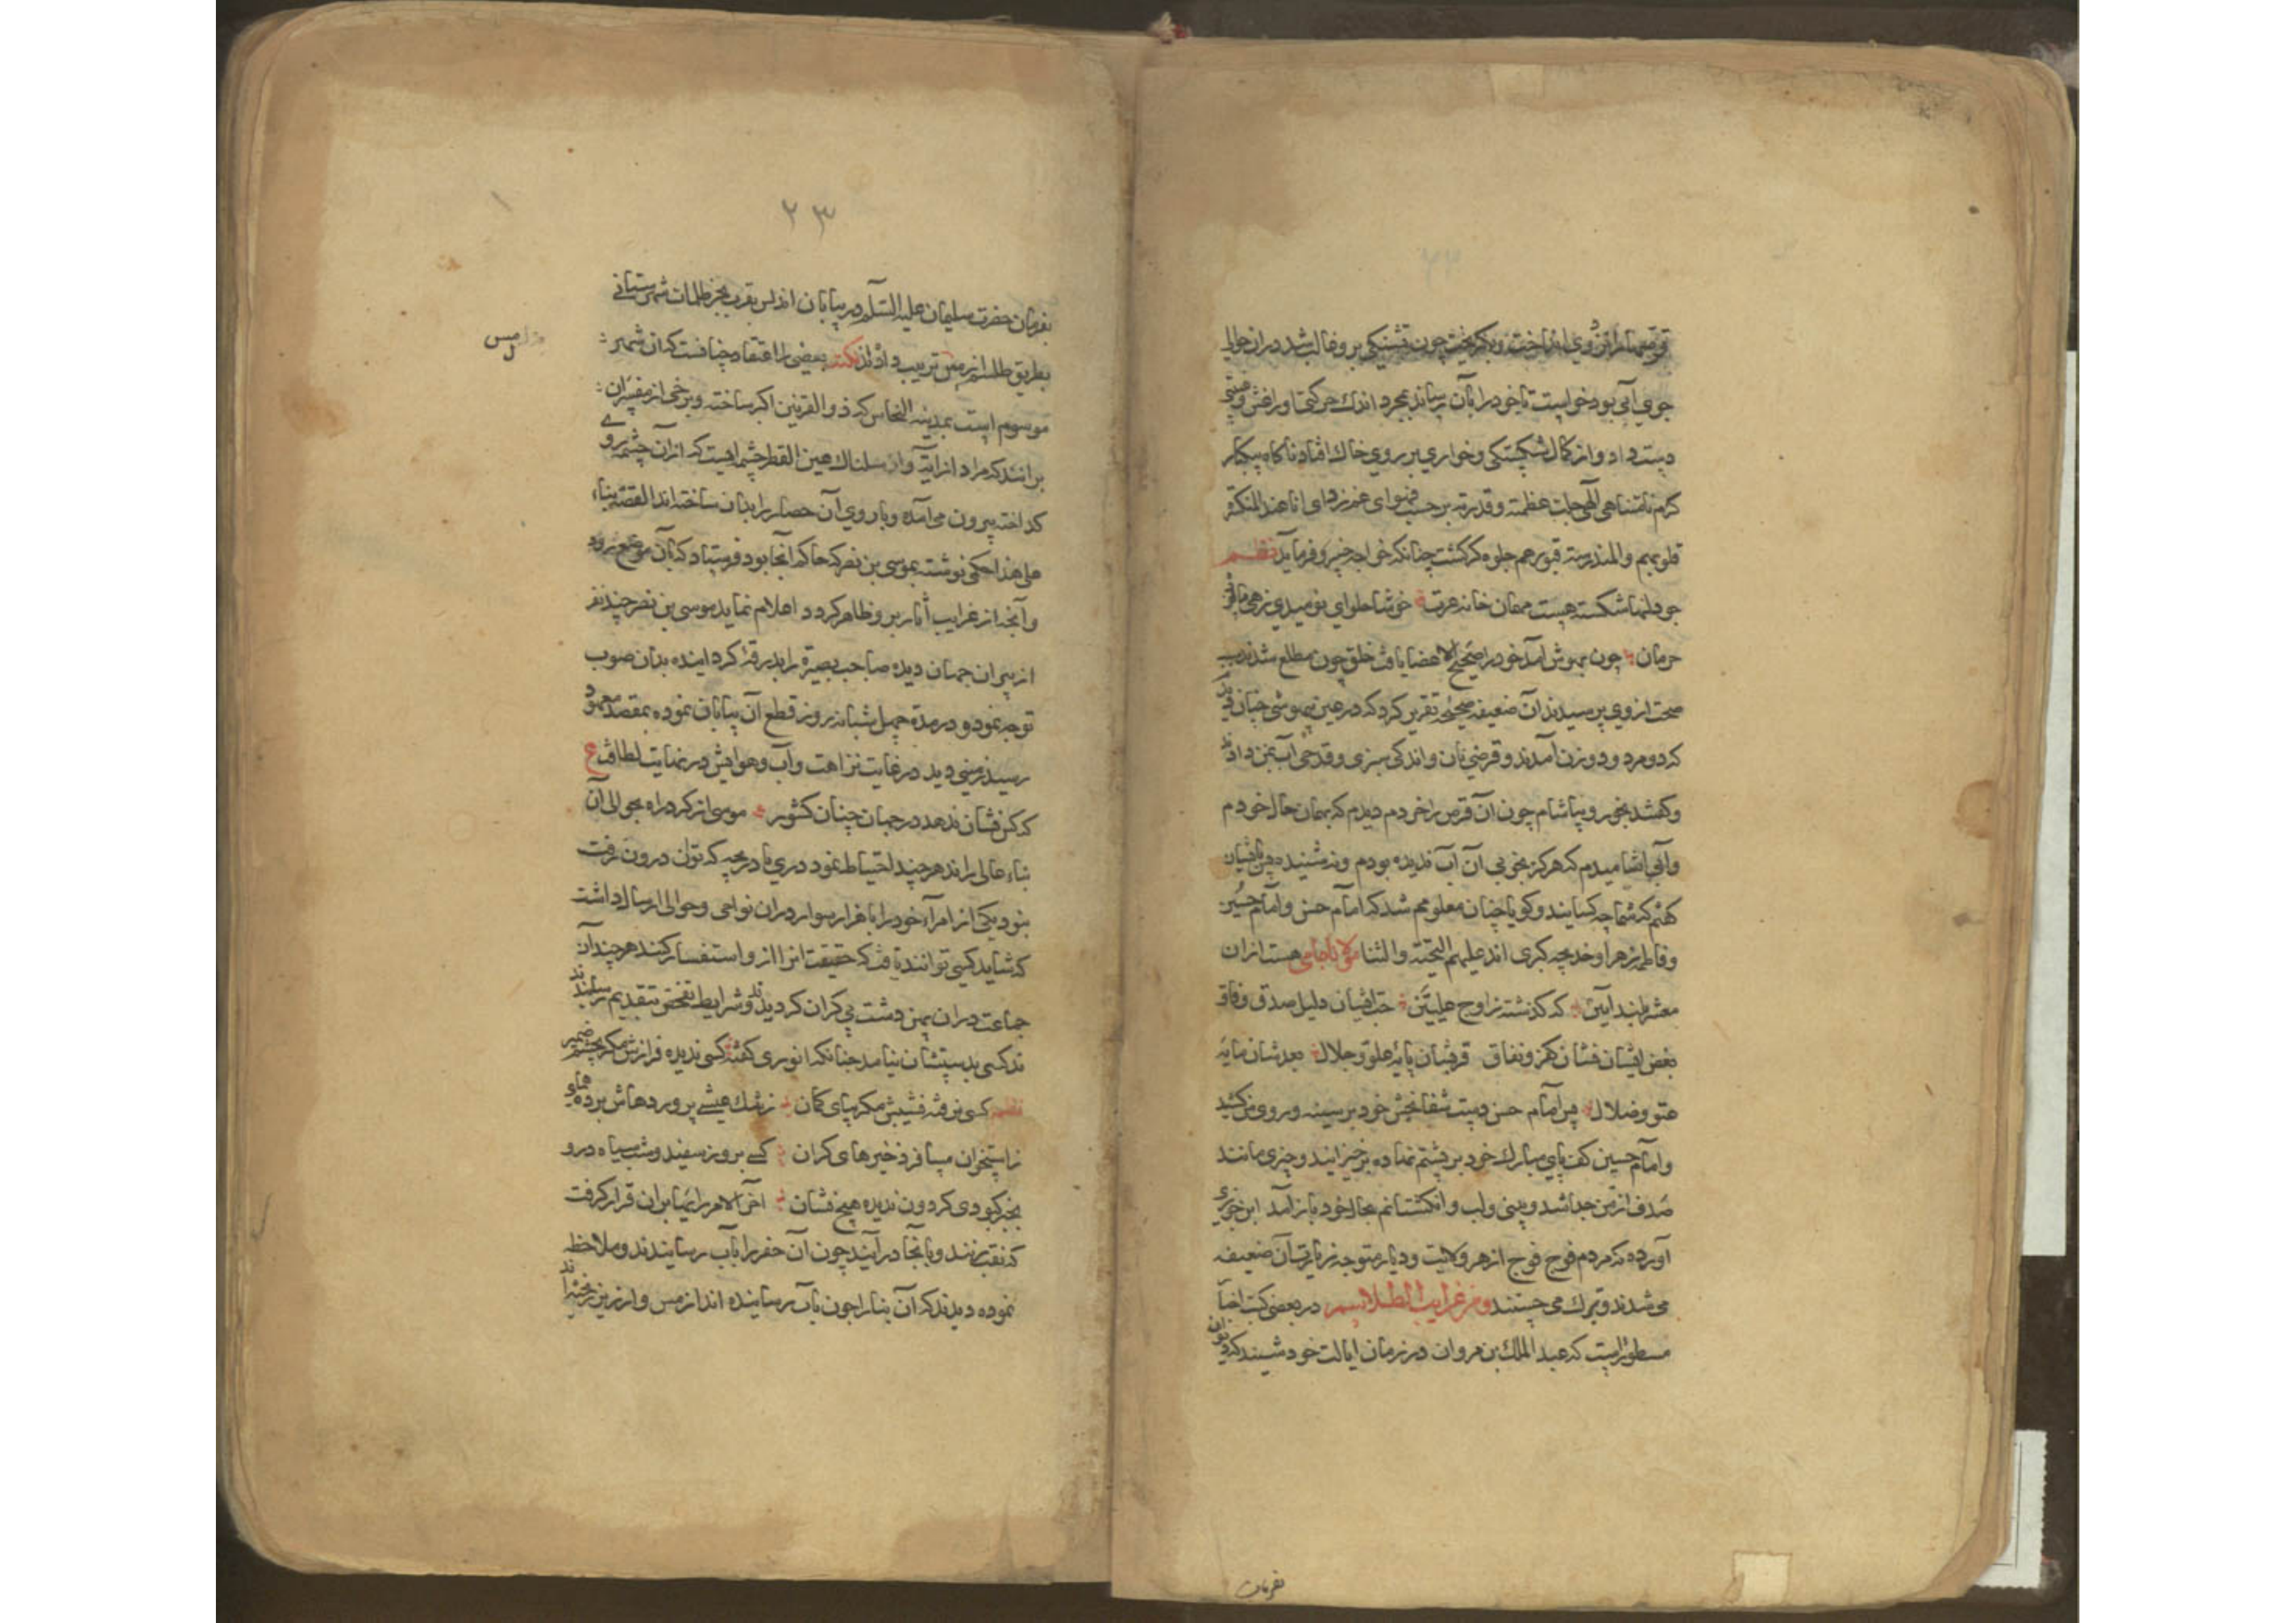 جوی آبی بود خواست تا خود را بآن رساند بمجرد اندك حرکتی او را غشی
دست داد و از کمال شکستکی و خواری بر روی خاك افتاد ناکاه
کرم نامتناهی الهی جلت عظمته و قدرته بر حسب فحوای انا عند المنکسرة
قلوبهم والمندرسة قبورهم جلوه کر کشت چنانکه خواجه خسرو فرماید نظم
چو دلهاء شکسته هست مهمان خانه عزت خوشا حلوای نومیدی زهی
حرمان چون بهوش آمد خود را صحیح الاعضا یافت خلق چون مطلع شدند
صحت از وی پرسیدند آن ضعیفه صحیحه تقریر کرد که در عین بیهوشی چنان
که دو مرد و دو زن آمدند و قرصی نان و اندکی سبزی و قدحی آب بمن دادند
و کفتند بخور و بیاشام چون آن قرص را خوردم دیدم که بهمان حال خودم
و آبی آشامیدم که هرکز بخوبی آن آب ندیده بودم و نه شنیده پس با ایشان
کفتم که شما چه کسانید و کویا چنان معلومم شد که امام حسن و امام حسین
و فاطمه زهرا و خدیجه کبری اند علیهم التحیة والثنا مولانا جامی هست ازان
معشر بلند آیین که کذشته ز اوج علیین حب ایشان دلیل صدق و وفاق
بغض ایشان نشان کفر و نفاق قربشان پایه علو و جلال بعدشان مایه
عتو و ضلال پس امام حسن دست شفابخش خود بر سینه و روی من کشید
و امام حسین کف پای مبارك خود بر پشتم نهاده برخیزانید و چیزی مانند
صدف از تن من جدا شد و بینی و لب و انکشتانم بحال خود باز آمد
آورده که مردم فوج فوج از هر ولایت و دیار متوجه زیارت آن ضعیفه
می شدند و تبرك می جستند ومن غرایب الطلاسم در بعضی کتب
مسطور است که عبد الملك بن مروان در زمان ایالت خود شنید که
بفرمان
۲۳
بفرمان حضرت سلیمان علیه السلام در بیابان اندلس بقرب بحر ظلمات شهرستانی
بطریق طلسم از مس ترتیب داده اند نکته بعضی را اعتقاد چنانست که آن شهر
موسوم است بمدینه النحاس که ذو القرنین اکبر ساخته و برخی از مفسران
بر انند که مراد از آیة و اسلناله عین القطر چشمه ایست که از آن چشمه روی
کداخته بیرون می آمده و باروی آن حصار را بدان ساخته اند القصه بناء
علی هذا حکمی نوشته بموسی بن نصر که حاکم آنجا بود فرستاد که بآن موضع رود
و آنچه از غرایب آثار برو ظاهر کردد اعلام نماید موسی بن نصر چند نفر
از پیران جهان دیده صاحب بصیرة را بدرقه کردانیده بدان صوب
توجه نمود و در مدة چهل شبانه روز قطع آن بیابان نموده بمقصد
رسید زمینی دید در غایت نزاهت و آب و هوایش در نهایت لطافت ع
که کس نشان ندهد در جهان چنان کشور موسی از کرد راه بحوالی آن
بناء عالی راند هرچند احتیاط نمود دری یا دریچه که توان درون رفت
نبود یکی از امراء خود را با هزار سوار دران نواحی و حوالی ارسال داشت
که شاید کسی توانند یافت که حقیقت انرا از و استفسار کنند هرچند آن
جماعت دران پهن دشت بی کران کردیدند و شرایط تفحص بتقدیم
کسی بدستشان نیامد چنانکه انوری کفته کسی ندیده فرازش مکر بچشم ضمیر
کسی نرفته نشیبش مکر بپای کمان
ز استخوان مسافر ذخیرهای کران کسی بروز سفید و شب سیاه درو
بجز کبودی کردون ندیده هیچ نشان آخر الامر رایها بران قرار کرفت
که نقب زنند و بآنجا در آیند چون آن حفر را بآب رسانیدند و ملاحظه
نموده دیدند که آن بنا را چون بآب رسانیده اند از مس و ارزیز